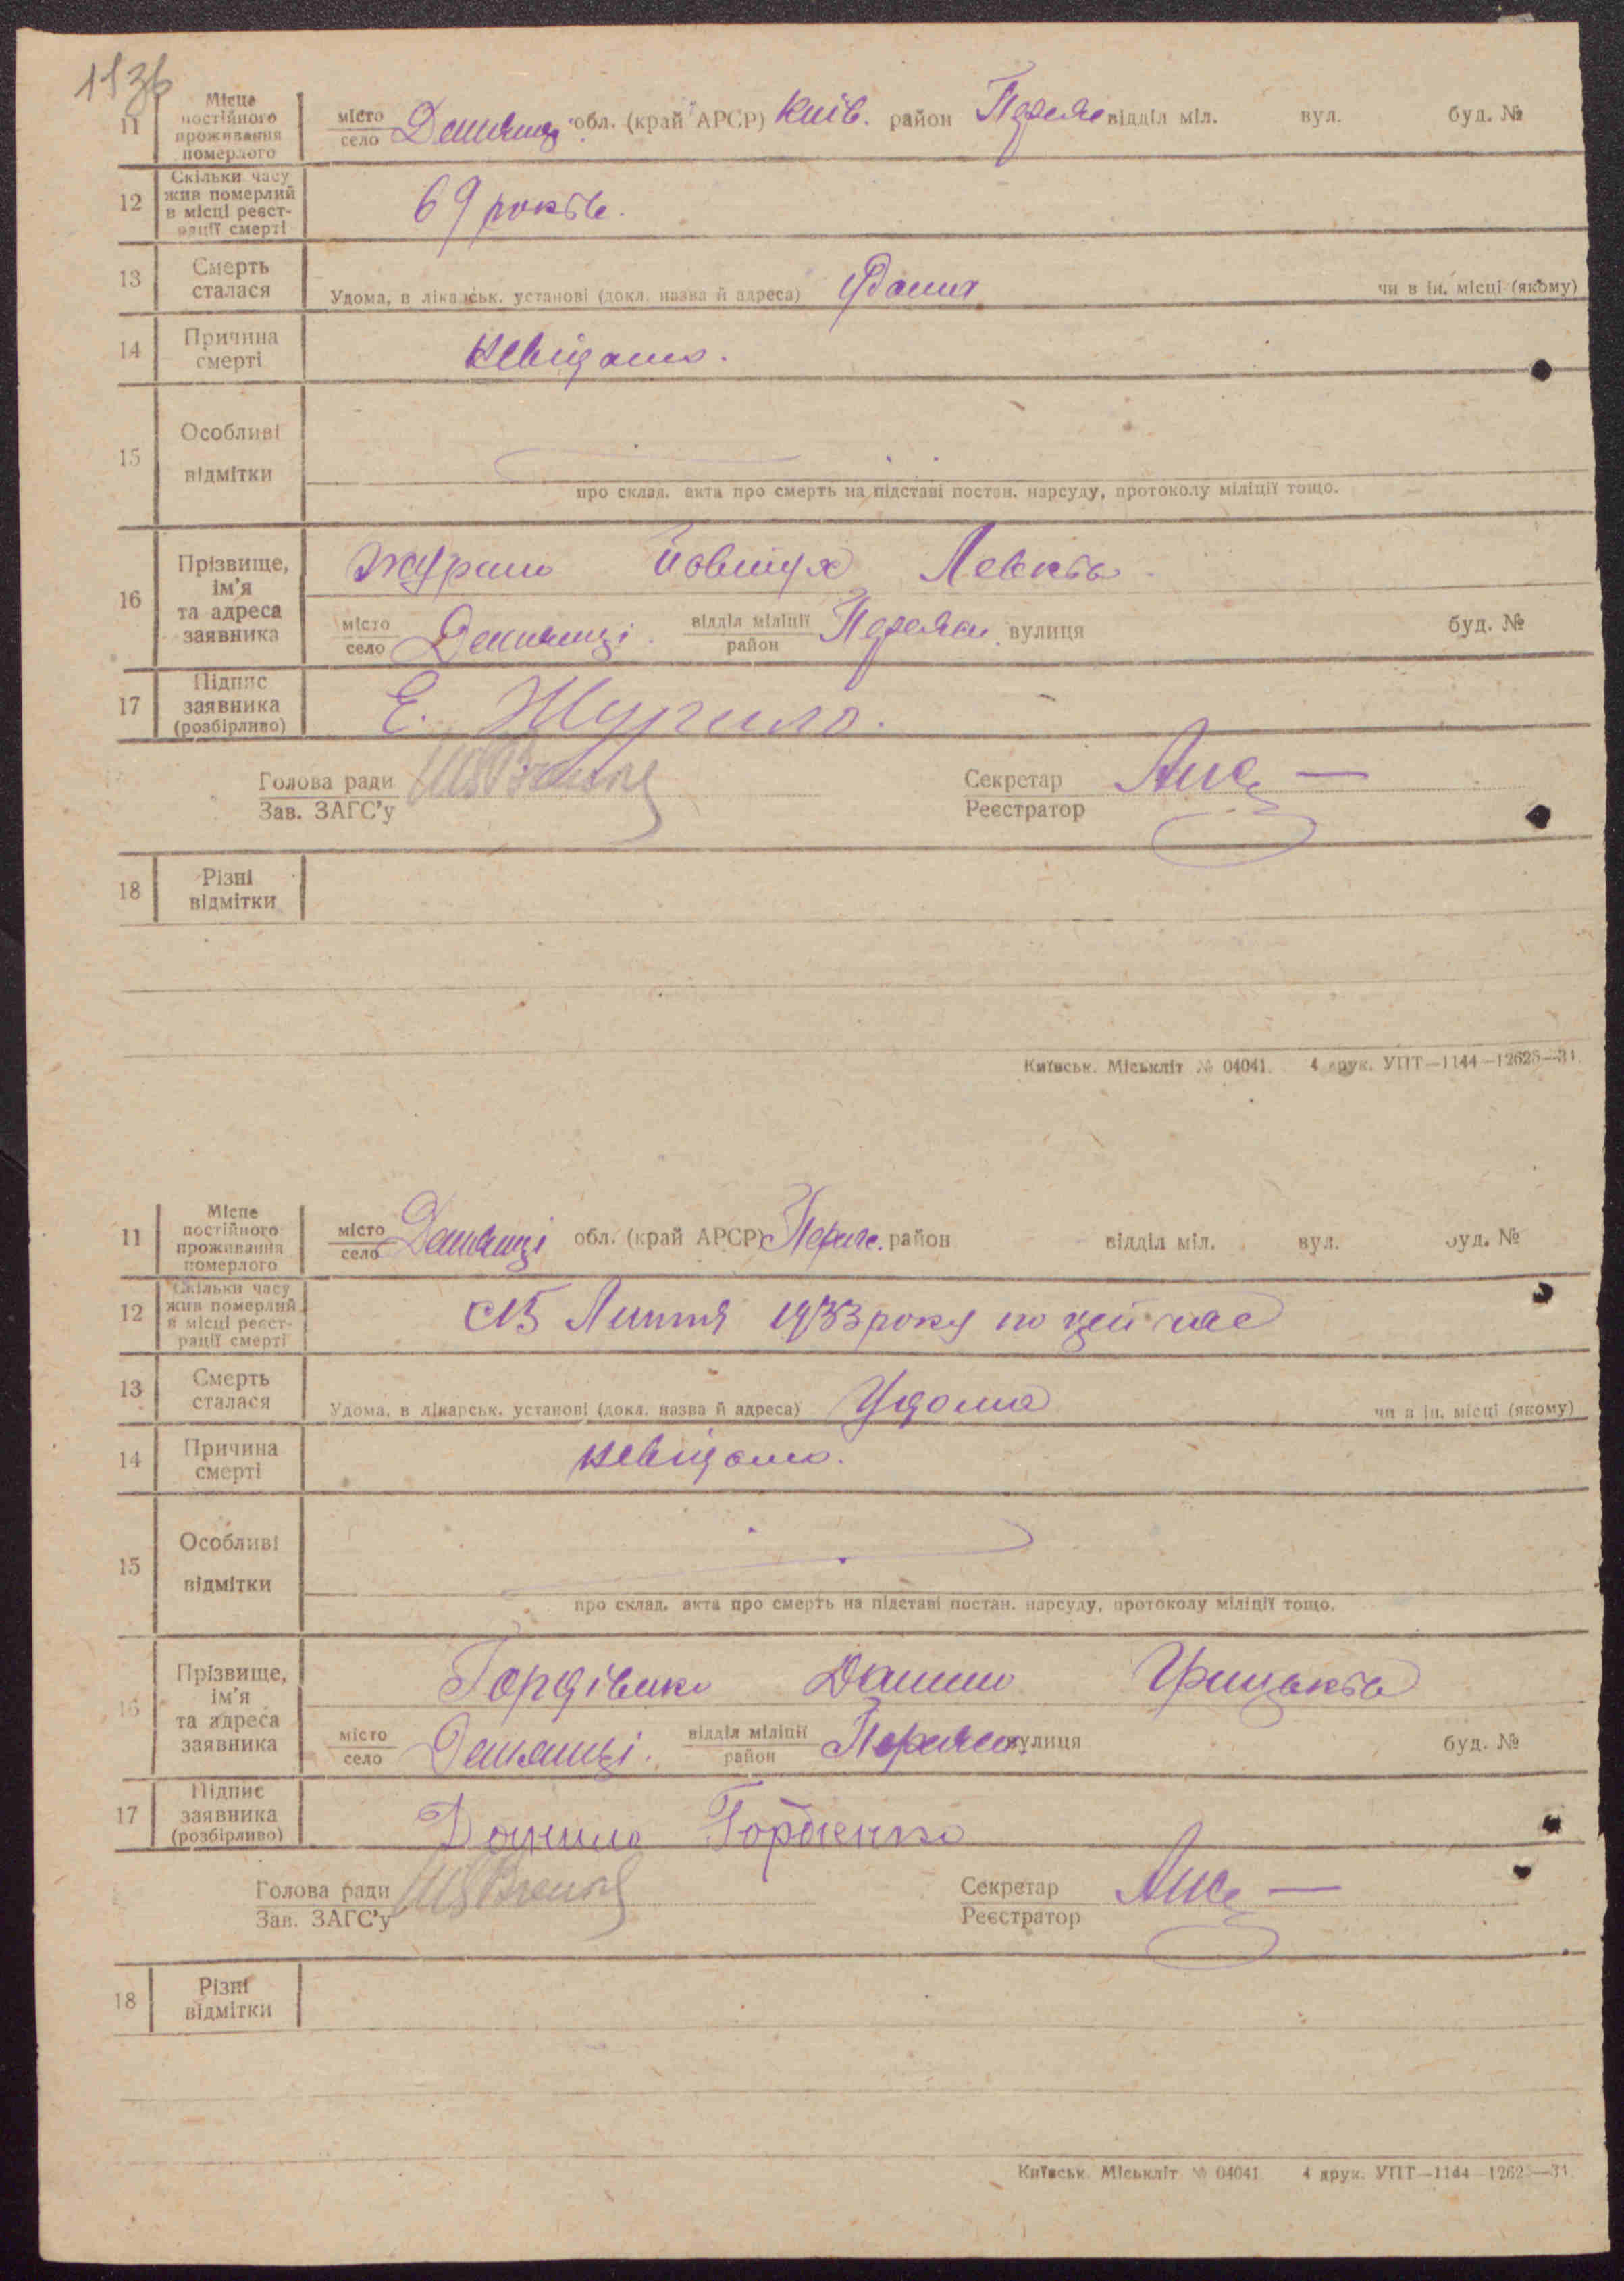 113б
11 Місце постійного проживання померлого місто село Дем'янці обл. (край АРСР) Київ. район Переяс відділ міл. вул. буд. №
12 Скільки часу жив померлий в місці реєстрації смерті 69 років.
13 Смерть сталася Удома, в лікарськ. установі (докл. назва й адреса) Удома чи в ін. місці (якому)
14 Причина смерті невідомо.
15 Особливі відмітки
про склад. акта про смерть на підставі постан. нарсуду, протоколу міліції тощо.
16 Прізвище, ім'я та адреса заявника Левків
місто село Дем'янці. відділ міліції район Переяс. вулиця буд. №
17 Підпис заявника (розбірливо) Е. Журило.
Голова ради Секретар
Зав. ЗАГС'у Реєстратор
18 Різні відмітки
Київськ. Міськліт № 04041. 4 друк. УПТ—1144—12625—31.
11 Місце постійного проживання померлого місто село Дем'янці обл. (край АРСР) Переяс. район відділ міл. вул. буд. №
12 Скільки часу жив померлий в місці реєстрації смерті 15 Липня 1933 року по цей час
13 Смерть сталася Удома, в лікарськ. установі (докл. назва й адреса) Удома чи в ін. місці (якому)
14 Причина смерті невідомо.
15 Особливі відмітки
про склад. акта про смерть на підставі постан. нарсуду, протоколу міліції тощо.
16 Прізвище, ім'я та адреса заявника Гордієнко Данило Грицьків
місто село Дем'янці. відділ міліції район Переяс. вулиця буд. №
17 Підпис заявника (розбірливо) Данило Гордіенко
Голова ради Секретар
Зав. ЗАГС'у Реєстратор
18 Різні відмітки
Київськ. Міськліт № 04041. 4 друк. УПТ—1144—12625—31.